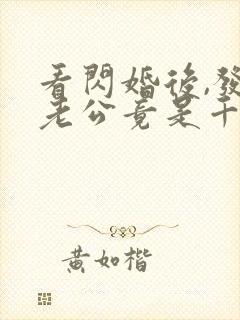 看閃婚後,發
老公竟是千
黃如楷